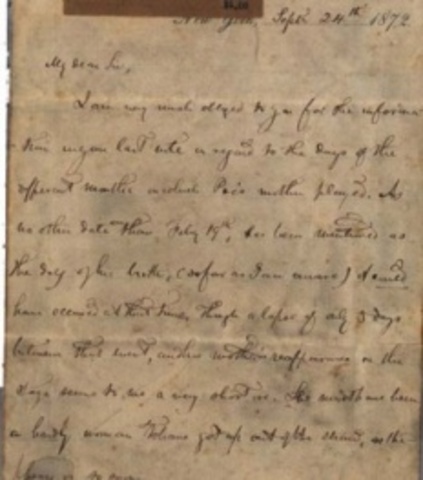 New York, Sept. 24th 1872
My dear Sir,
I am very much obliged to you for the informa-
tion in your last note in regard to the days of the
different months in which Poe's mother played. As
no other date than Feby 19th, has been mentioned as
the day of his birth, (so far as I am aware) it could
have occurred at that time, though a lapse of only days
between that event, and his mother's reappearance on the
stage seems to me a very short one. She must have been
a hardy woman to have got up out of the as the